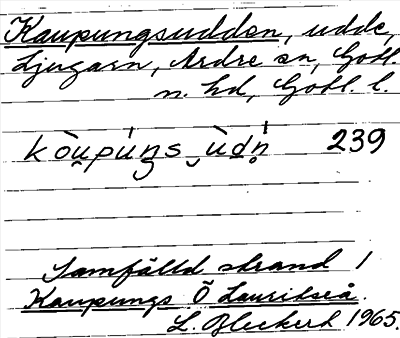 Kaupungsudden, udde,
Ljugarn, Ardre sn, Gotl.
n. hd, Gotl. l.
kòu̯púŋs ˬùdn̥ 239
Samfälld strand /
Kaupungs Ö Lauritseå.
L. Bleckert 1965.